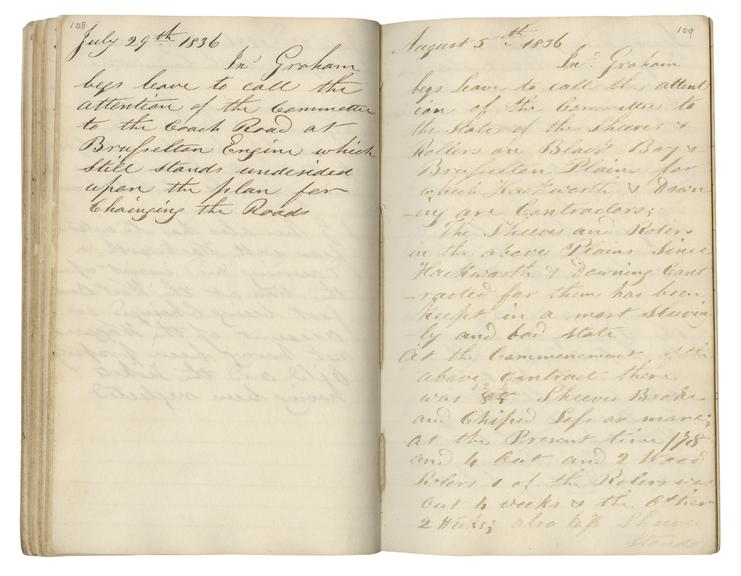 108
July 29th 1836
Jno. Graham
begs leave to call the
attention of the Committee
to the Coach Road at
Brusselton Engine which
still stands undesided
upon the plan for
Chainging the Roads
109
August 5th 1836
Jno. Graham
begs leave to call the attent
ion of the Committee to
the State of the Sheeves &
Rollers on Black Boy &
Brusselton Plains for
which Hackworth & Down
-ing are Contractors;
The Sheeves and Rolers
in the above Plains Since
Hackworth & Downing Cont
-racted for them has been
Keept in a most Sloven
-ly and bad state
At the Commencement of the
above Contract there
was Sheeves Broke
and Chiped Less or more;
at the Present time 178
and 4 Out and 2 Wood
Rolers 1 of the Rolers was
Out 4 weeks & the Other
2 Weeks; also Sheeve
Stands